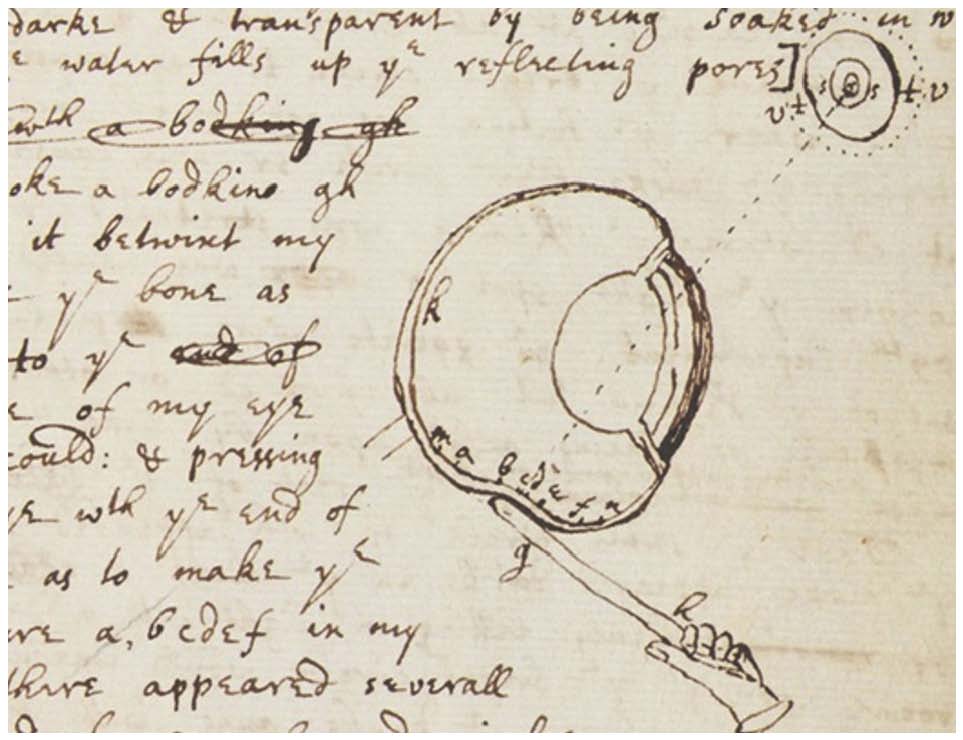 darke & transparent by being soaked in w
e water fills up yᵉ reflecting pores]
wth a bodking gh
oke a bodkine gh
it betwixt my
yᵉ bone as
to yᵉ end of
e of my eye
could: & pressing
ye wth yᵉ end of
as to make yᵉ
ure a, bcdef in my
there appeared severall
s s
v t t v
k
m a b c d e f n
g
h